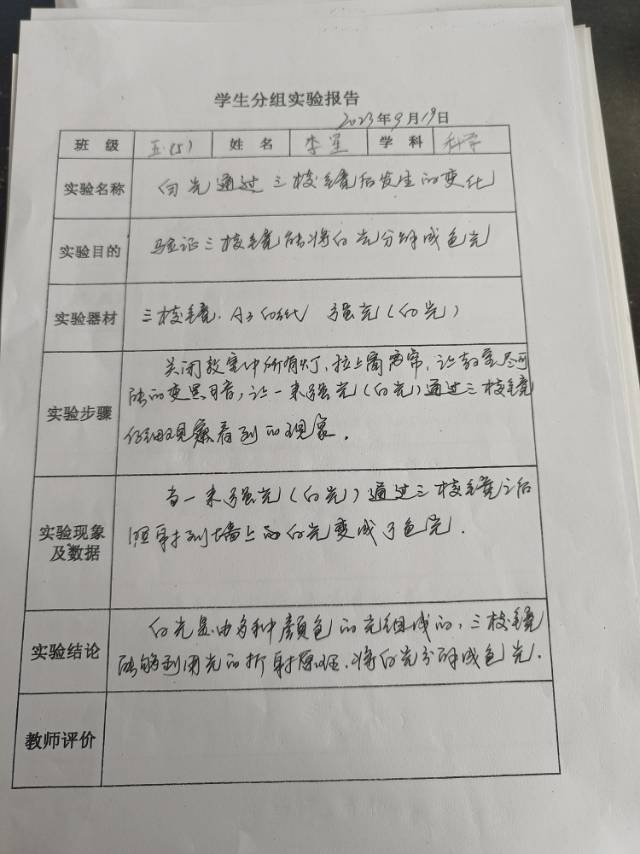 学生分组实验报告
2023年9月19日
班级 五(5) 姓名 李星 学科 科学
实验名称 白光通过三棱镜后发生的变化
实验目的 验证三棱镜能将白光分解成色光
实验器材 三棱镜、 强光(白光)
实验步骤 关闭教室中所有灯,拉上窗帘,让教室尽可
能的变黑暗,让一束强光(白光)通过三棱镜
仔细观察看到的现象。
实验现象及数据 当一束强光(白光)通过三棱镜之后
照射到墙上的白光变成了色光.
实验结论 白光是由多种颜色的光组成的,三棱镜
能够利用光的折射原理,将白光分解成色光.
教师评价